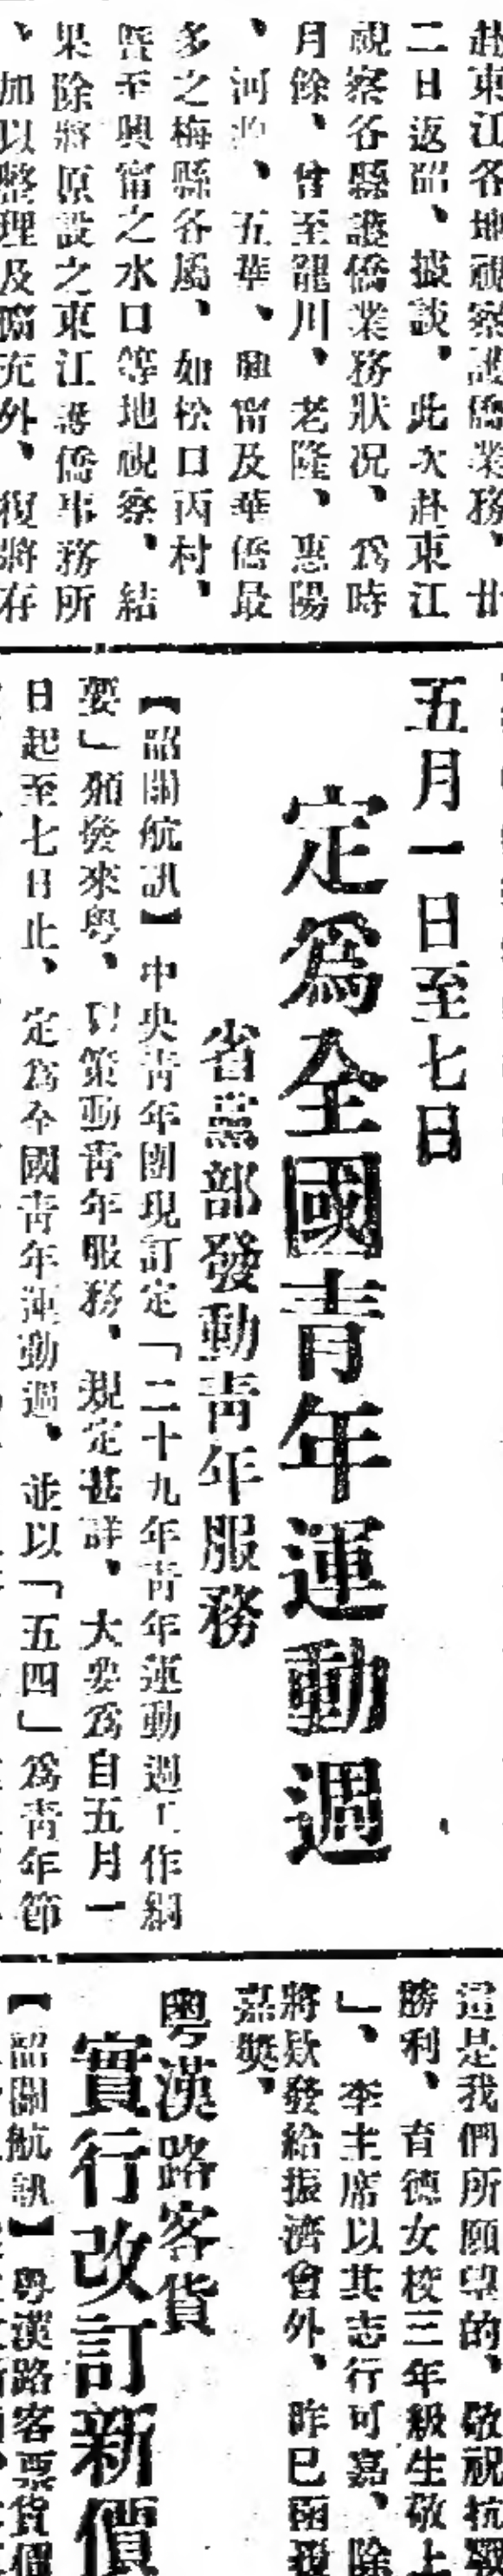 赴東江各地視察護僑業務、廿
二日返韶、據談、此次赴東江
視察各縣護僑業務狀况、爲時
月餘、曾至龍川、老隆、惠陽
、河、五華、興甯及華僑最
多之梅縣各屬、如松口丙村、
暨至興甯之水口等地視察、結
果除將原設之東江護僑事務所
、加以整理及擴充外、復將存
五月一日至七日
定爲全國青年運動週
省黨部發動青年服務
【韶關航訊】中央青年團現訂定「二十九年青年運動週工作綱
要」頒發來粤、以策動青年服務、規定甚詳、大要爲自五月一
日起至七日止、定爲全國青年運動週、並以「五四」爲青年節
這是我們所願望的、敬祝抗戰
勝利、育德女校三年級生敬上
」、李主席以其志行可嘉、除
將欵發給振濟會外、昨已函復
嘉奬、
粤漢路客貨
實行改訂新價
【韶關航訊】粤漢路客票貨價